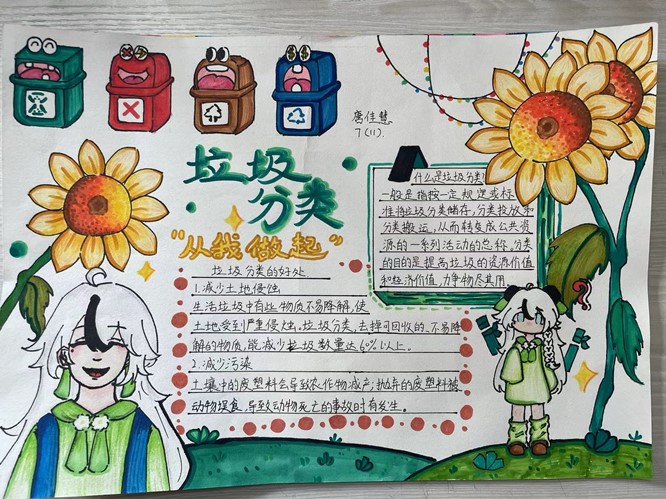 唐佳慧
7(11).
垃圾
分类
“从我做起”
什么是垃圾分类?
一般是指按一定规定或标
准将垃圾分类储存,分类投放和
分类搬运,从而转变成公共资
源的一系列活动的总称,分类
的目的是提高垃圾的资源价值
和经济价值,力争物尽其用
垃圾分类的好处
1.减少土地侵蚀
生活垃圾中有些物质不易降解,使
土地受到严重侵蚀,垃圾分类,去掉可回收的、不易降
解的物质,能减少垃圾数量达60%以上。
2.减少污染
土壤中的废塑料会导致农作物减产;抛弃的废塑料被
动物误食,导致动物死亡的事故时有发生。